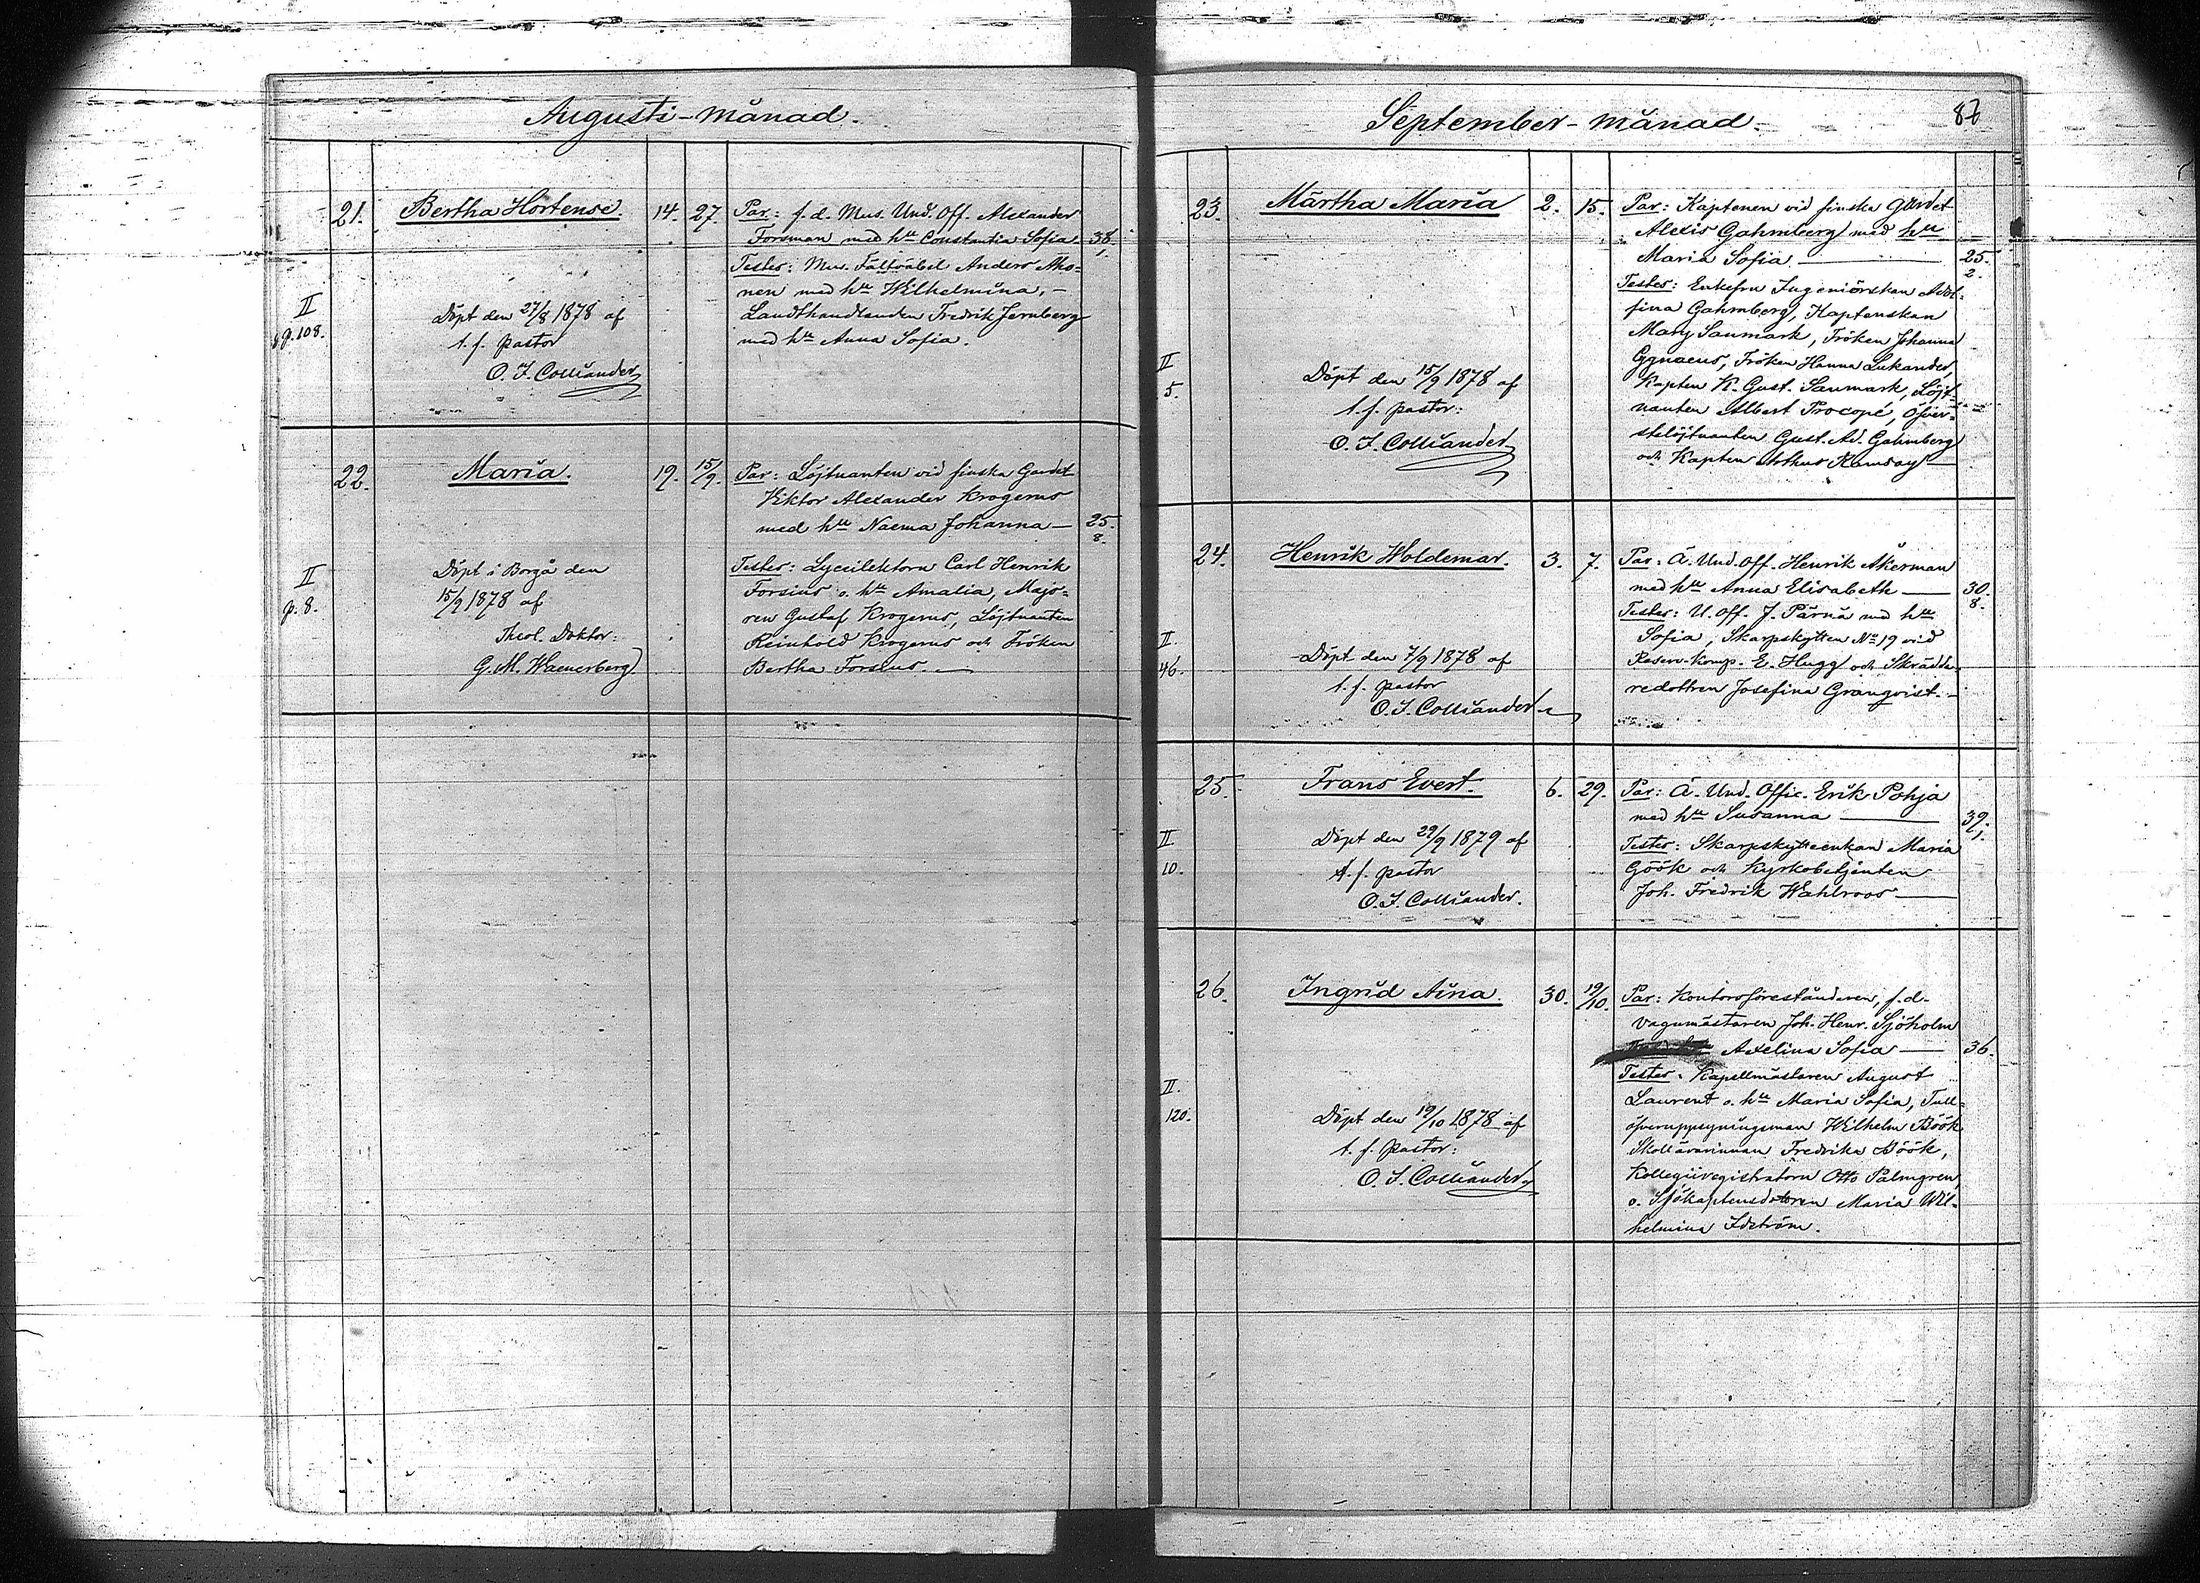 Augusti-månad.
21. Bertha Hortense. 14. 27. Par: f.d. Mus. Und. Off. Alexander
Forsman med h:u Constantia Sofia 38.
1.
Testes: Mus. Fältväbel Anders Aho-
nen med h:u Wilhelmina, -
II
p. 108.
Döpt den 27/8 1878 af
Landthandlanden Fredrik Jernberg
t. f. pastor
med h:u Anna Sofia.
O. I. Colliander
22. Maria. 19. 15/9. Par: Löjtnanten vid finska Gardet
Viktor Alexander Krogerus
med h:u Naema Johanna — 25.
8.
II
p. 8.
Döpt i Borgå den
Testes: Lyceilektorn Carl Henrik
15/9 1878 af
Forsius o. h:u Amalia, Majo-
ren Gustaf Krogerus, Löjtnanten
Theol. Doktor:
Reinhold Krogerus och Fröken
G. M. Waenerberg
Bertha Forsius. —
September-månad.
87
23. Märtha Maria 2. 15. Par: Kaptenen vid finska Gardet
Alexis Gahmberg med h:u
Maria Sofia — 25.
2.
Testes: Enkefru Ingeniörskan Adol-
fina Gahmberg, Kaptenskan
Mary Sanmark, Fröken Johanna
II
5.
Cygnaeus, Fröken Hanna Lukander,
Döpt den 15/9 1878 af
Kapten K. Gust. Sanmark, Löjt-
t. f. pastor:
nanten Albert Procopé, Öfver-
O. I. Colliander
stelöjtnanten Gust. Ad. Gahmberg
och Kapten Arthur Ramsay —
24. Henrik Woldemar. 3. 7. Par: Ä. Und. Off. Henrik Åkerman
med h:u Anna Elisabeth — 30.
8.
Testes: U. Off. J. Pärnä med h:u
II
46.
Sofia, Skarpskytten No 19 vid
Döpt den 7/9 1878 af
Reserv-Komp. E. Hugg och Skrädda-
t. f. pastor
redottren Josefina Granqvist. -
O. I. Colliander
25. Frans Evert. 6. 29. Par: Ä. Und. Offic. Erik Pohja
med h:u Susanna — 39.
1.
II
10.
Döpt den 29/9 1879 af
Testes: Skarpskytteenkan Maria
t. f. pastor
Göök och Kyrkobetjenten
O. I. Colliander.
Joh. Fredrik Wahlroos —
26. Ingrid Aina. 30. 19/10. Par: Kontorsföreståndaren, f.d.
Vagnmästaren Joh. Henr. Sjöholm
Axelina Sofia — 36.
Testes: Kapellmästaren August
II.
120.
Laurent o. h:u Maria Sofia, Tull-
Döpt den 19/10 1878 af
öfveruppsyningsman Wilhelm Böök
t. f. pastor:
Skollärarinnan Fredrika Böök,
O. I. Colliander
Kollegiiregistratorn Otto Palmgren,
o. Sjökaptensdottren Maria Wil-
helmina Idström.